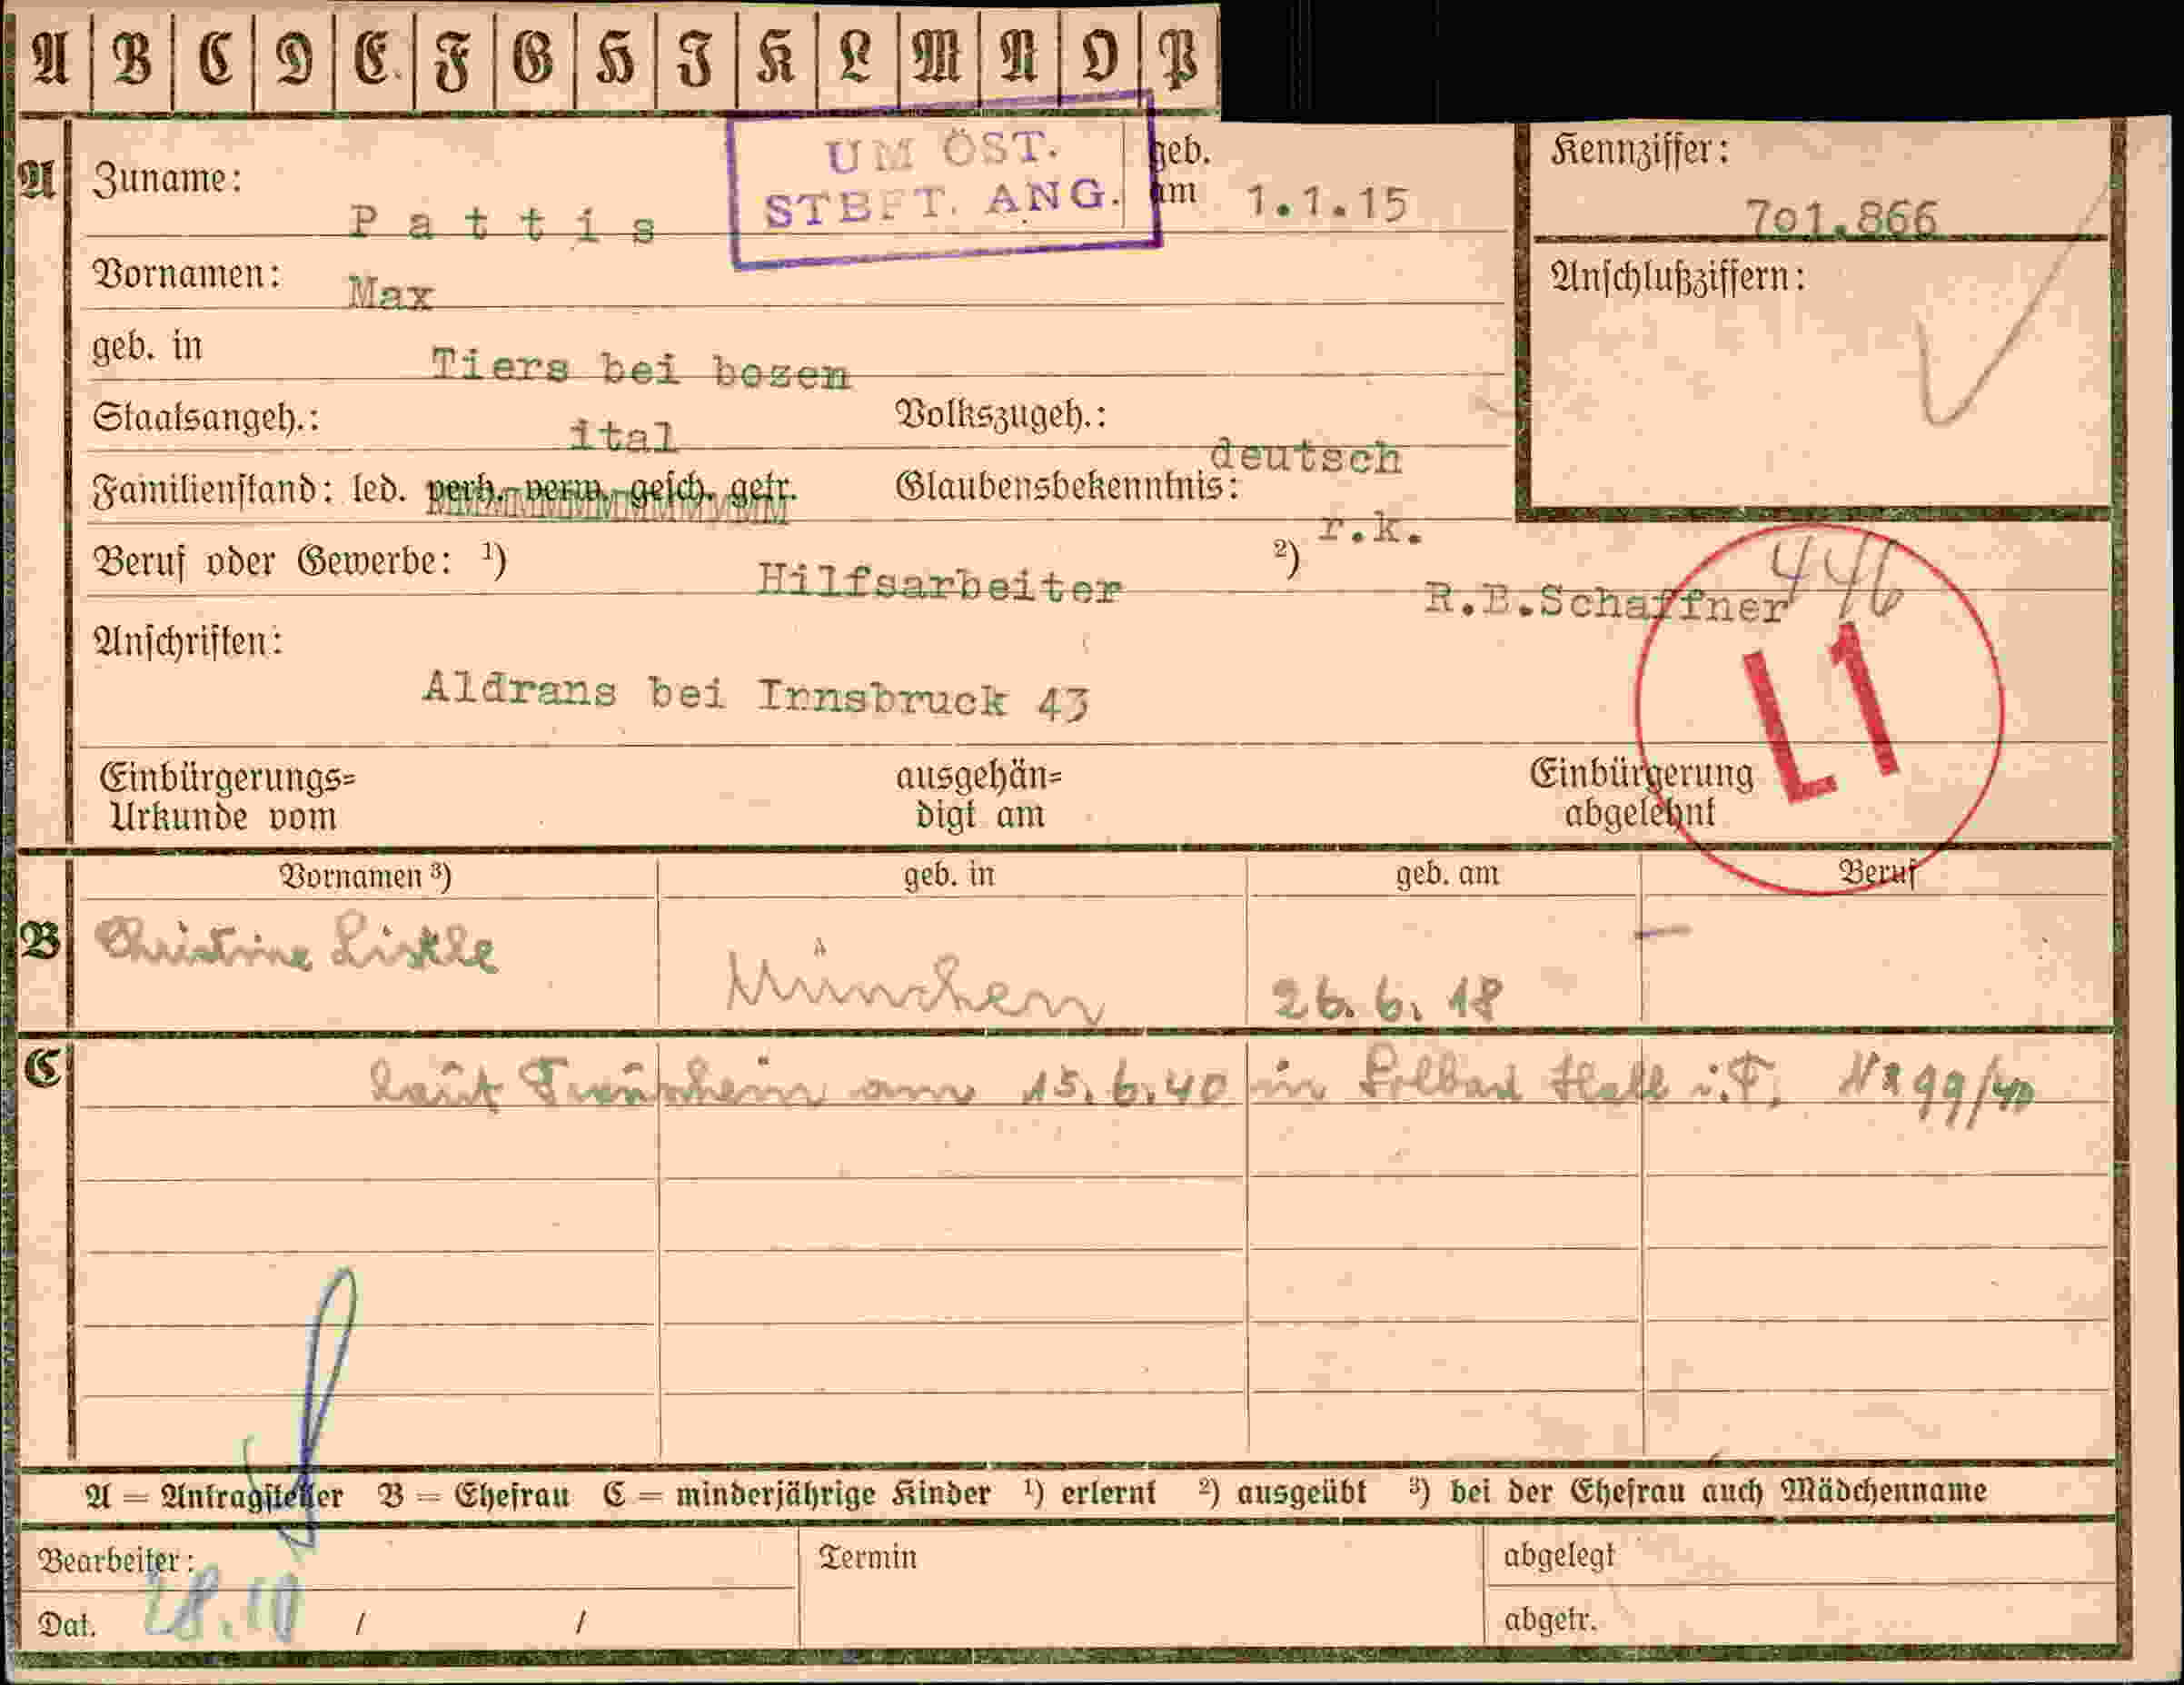 A B C D E F G H I K L M N O P
UM ÖST.
STBFT. ANG.
A Zuname: Pattis geb. am 1.1.15
Kennziffer: 701.866
Vornamen: Max
Anschlußziffern:
geb. in Tiers bei bozen
Staatsangeh.: ital Volkszugeh.: deutsch
Familienstand: led. verh. verw. gesch. getr. Glaubensbekenntnis: r.k.
Beruf oder Gewerbe: 1) Hilfsarbeiter 2) R.B.Schaffner
446
L1
Anschriften: Aldrans bei Innsbruck 43
Einbürgerungs= ausgehän= Einbürgerung
Urkunde vom digt am abgelehnt
Vornamen 3) geb. in geb. am Beruf
B Christine Liskle München 26.6.18 –
C laut Trauschein am 15.6.40 in Solbad Hall i.T. Nr 99/40
A = Antragsteller B = Ehefrau C = minderjährige Kinder 1) erlernt 2) ausgeübt 3) bei der Ehefrau auch Mädchenname
Bearbeiter: Termin abgelegt
Dat. 28.10 / / abgetr.